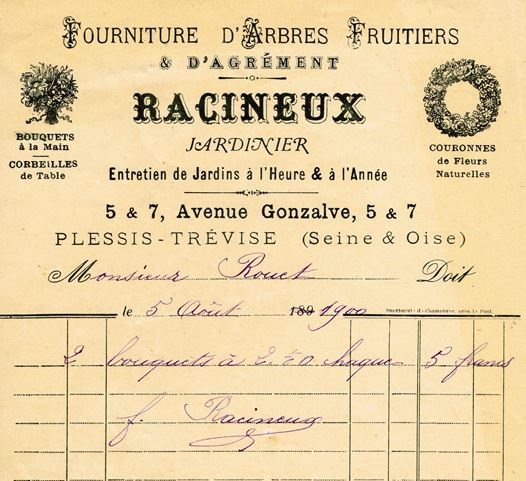 FOURNITURE D'ARBRES FRUITIERS
& D'AGRÉMENT
RACINEUX
JARDINIER
BOUQUETS
à la Main
CORBEILLES
de Table
COURONNES
de Fleurs
Naturelles
Entretien de Jardins à l'Heure & à l'Année
5 & 7, Avenue Gonzalve, 5 & 7
PLESSIS-TRÉVISE (Seine & Oise)
Monsieur Rouet Doit
le 5 Août 189 1900
2 bouquets à 2,50 chaque 5 francs
f. Racineux